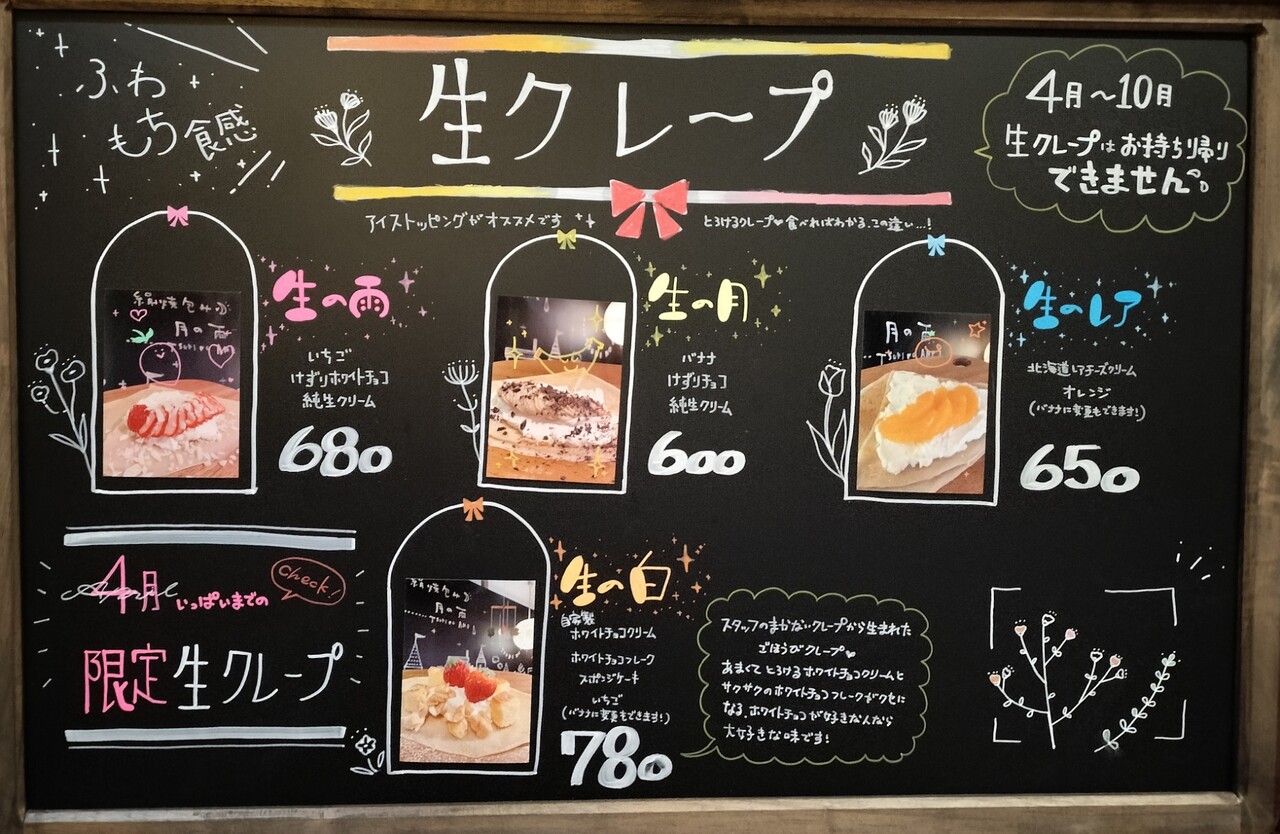 ふわ
もち食感
生クレープ
4月〜10月
生クレープはお持ち帰り
できません。
アイストッピングがオススメです
とろけるクレープ♥食べればわかる、この違い…!
絹焼包みが
月の雨
TSUKI no AME
生の雨
いちご
けずりホワイトチョコ
純生クリーム
680
生の月
バナナ
けずりチョコ
純生クリーム
600
月の雨
生のレア
北海道レアチーズクリーム
オレンジ
(バナナに変更もできます!)
650
4月いっぱいまでの
April
Check!
限定生クレープ
絹焼包みが
月の雨
TSUKI no AME
生の白
自家製
ホワイトチョコクリーム
ホワイトチョコフレーク
スポンジケーキ
いちご
(バナナに変更もできます!)
780
スタッフのまかないクレープから生まれた
ごほうびクレープ♥
あまくてとろけるホワイトチョコクリームと
サクサクのホワイトチョコフレークがクセに
なる、ホワイトチョコが好きな人なら
大好きな味です!